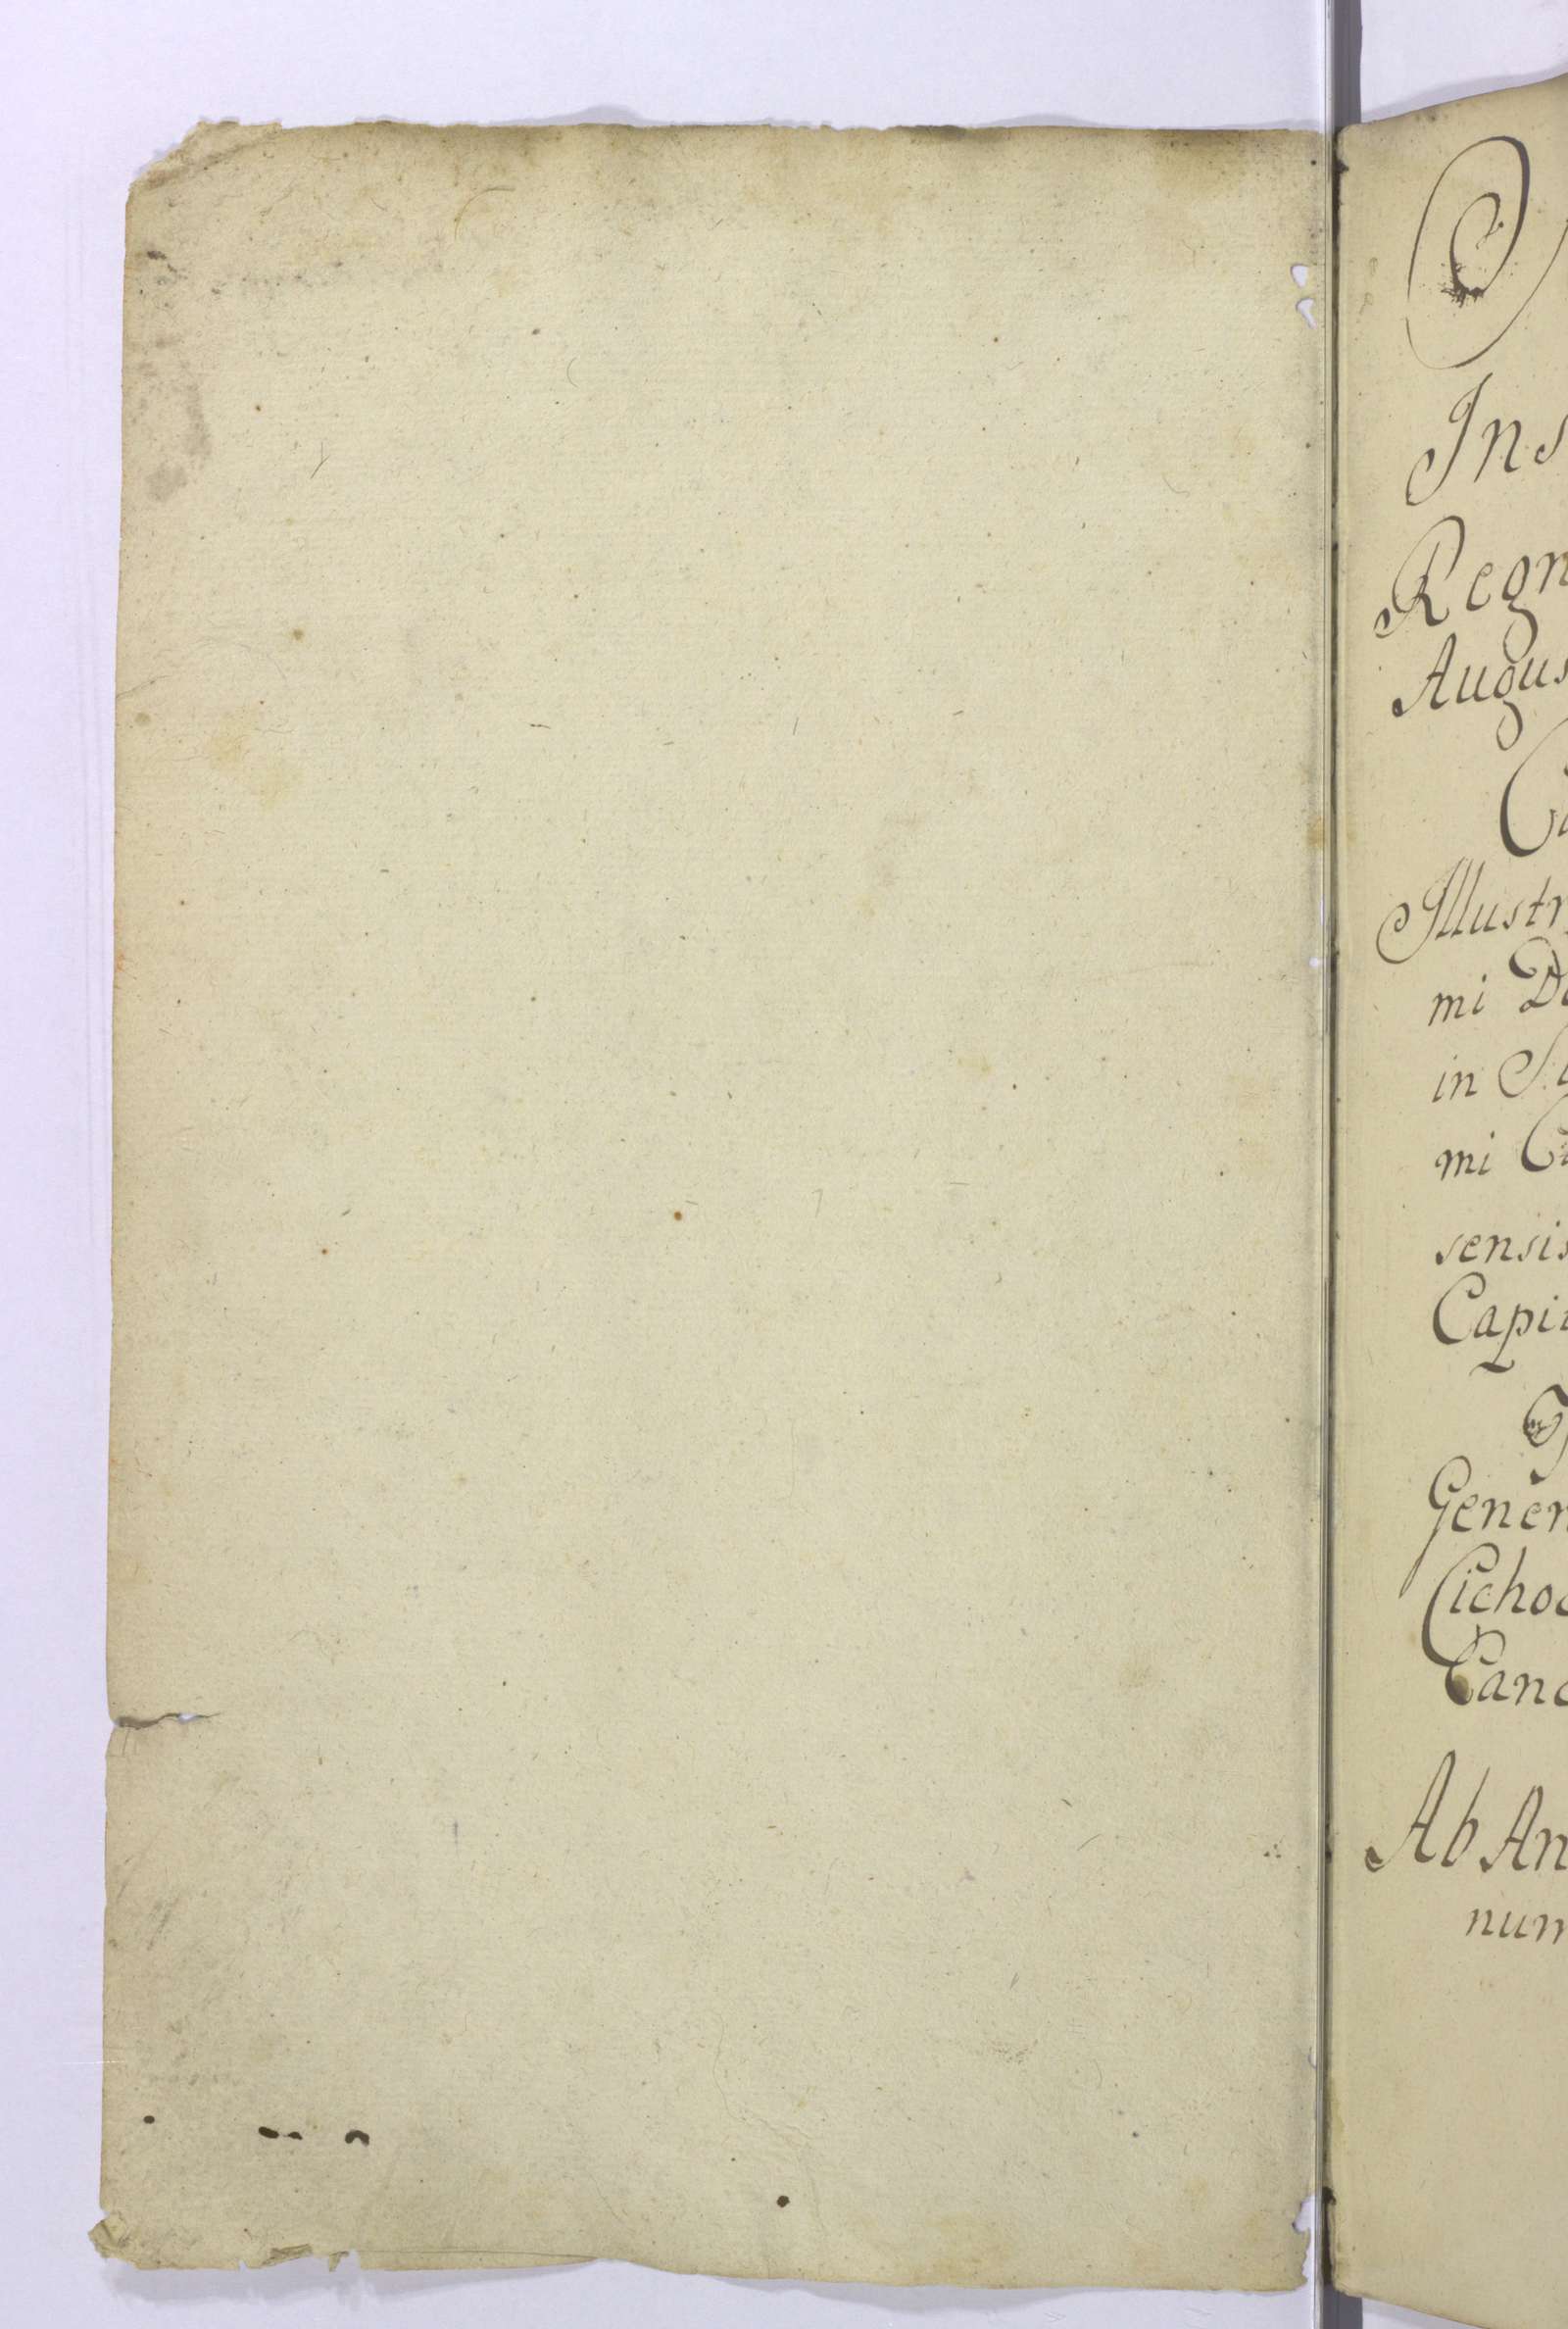 Ins
Regn
Augus
Ca
Illustr
mi Do
in
mi
sensis
Capit
Gener
Cichoc
Canc
Ab An
num